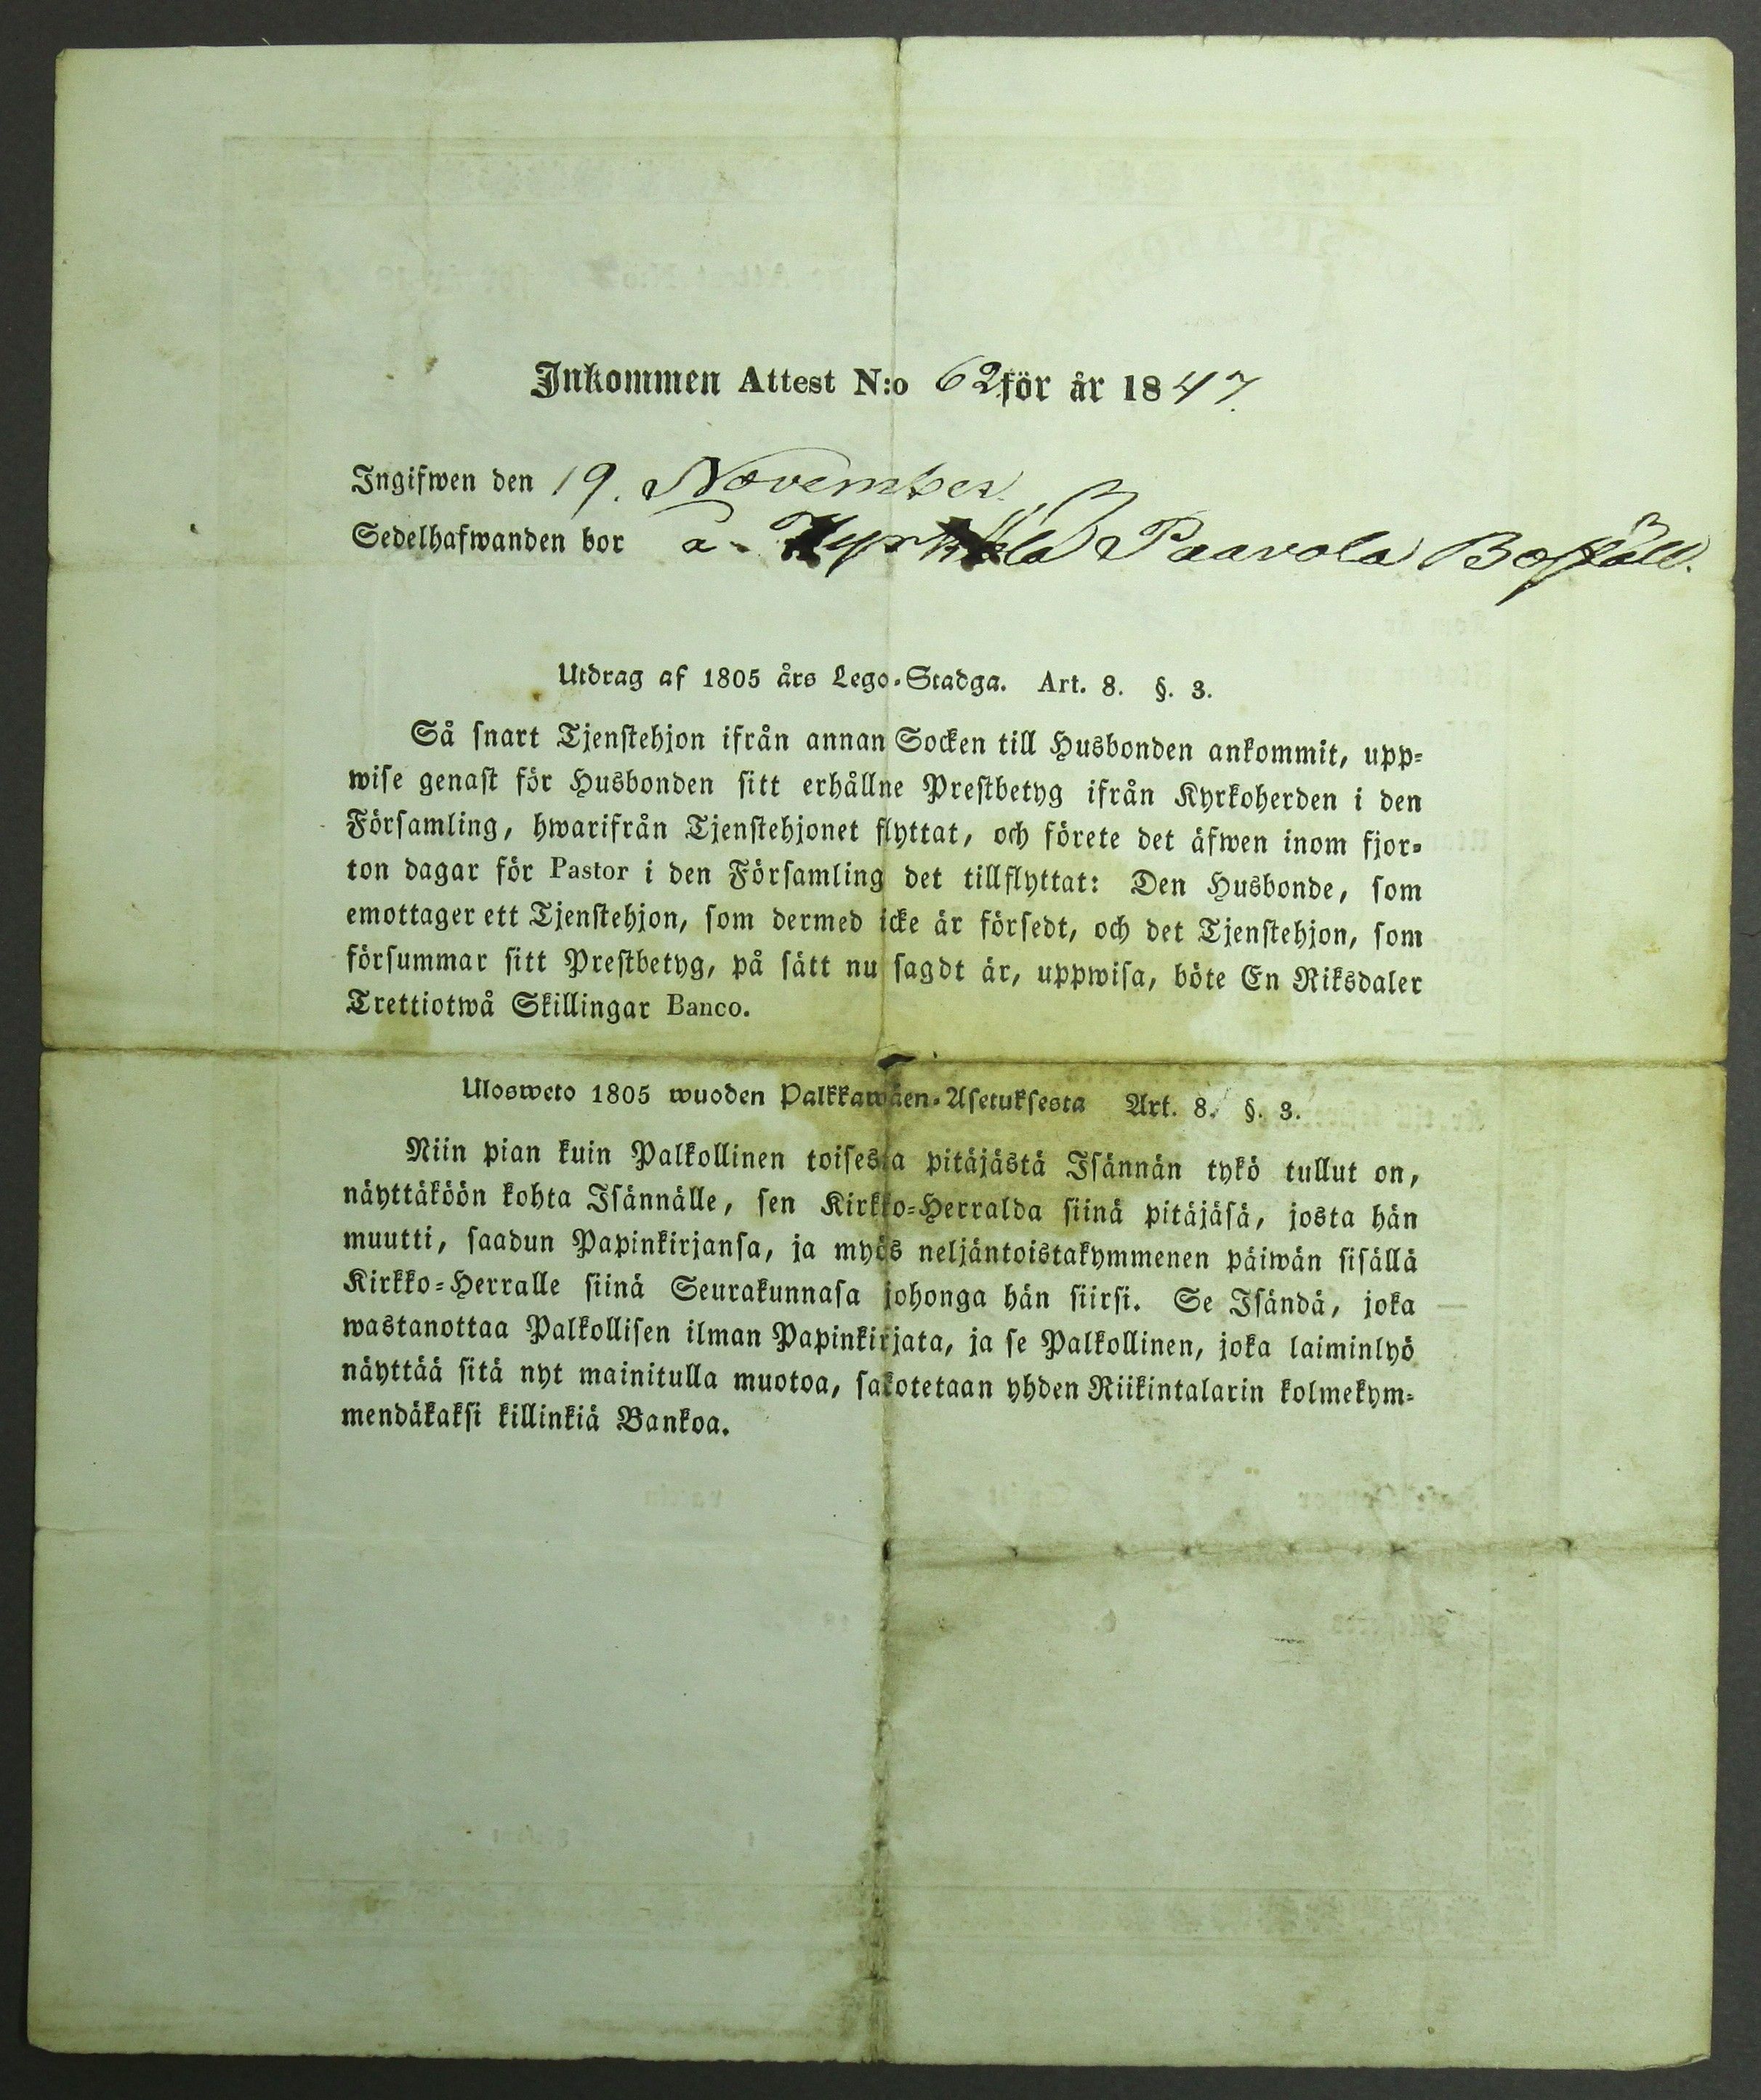 Inkommen Attest N:o 62 för år 1847.
Ingifwen den 19. November.
Sedelhafwanden bor å Paavola Boställ.
Utdrag af 1805 års Lego-Stadga. Art. 8. §. 3.
Så snart Tjenstehjon ifrån annan Socken till Husbonden ankommit, upp-
wise genast för Husbonden sitt erhållne Prestbetyg ifrån Kyrkoherden i den
Församling, hwarifrån Tjenstehjonet flyttat, och förete det äfwen inom fjor-
ton dagar för Pastor i den Församling det tillflyttat: Den Husbonde, som
emottager ett Tjenstehjon, som dermed icke är försedt, och det Tjenstehjon, som
försummar sitt Prestbetyg, på sätt nu sagdt är, uppwisa, böte En Riksdaler
Trettiotwå Skillingar Banco.
Ulosweto 1805 wuoden Palkkawäen-Asetuksesta Art. 8. §. 3.
Niin pian kuin Palkollinen toisesta pitäjästä Isännän tykö tullut on,
näyttäköön kohta Isännälle, sen Kirkko-Herralda siinä pitäjäsä, josta hän
muutti, saadun Papinkirjansa, ja myös neljäntoistakymmenen päiwän sisällä
Kirkko-Herralle siinä Seurakunnasa johonga hän siirsi. Se Isändä, joka
wastanottaa Palkollisen ilman Papinkirjata, ja se Palkollinen, joka laiminlyö
näyttää sitä nyt mainitulla muotoa, sakotetaan yhden Riikintalarin kolmekym-
mendäkaksi killinkiä Bankoa.